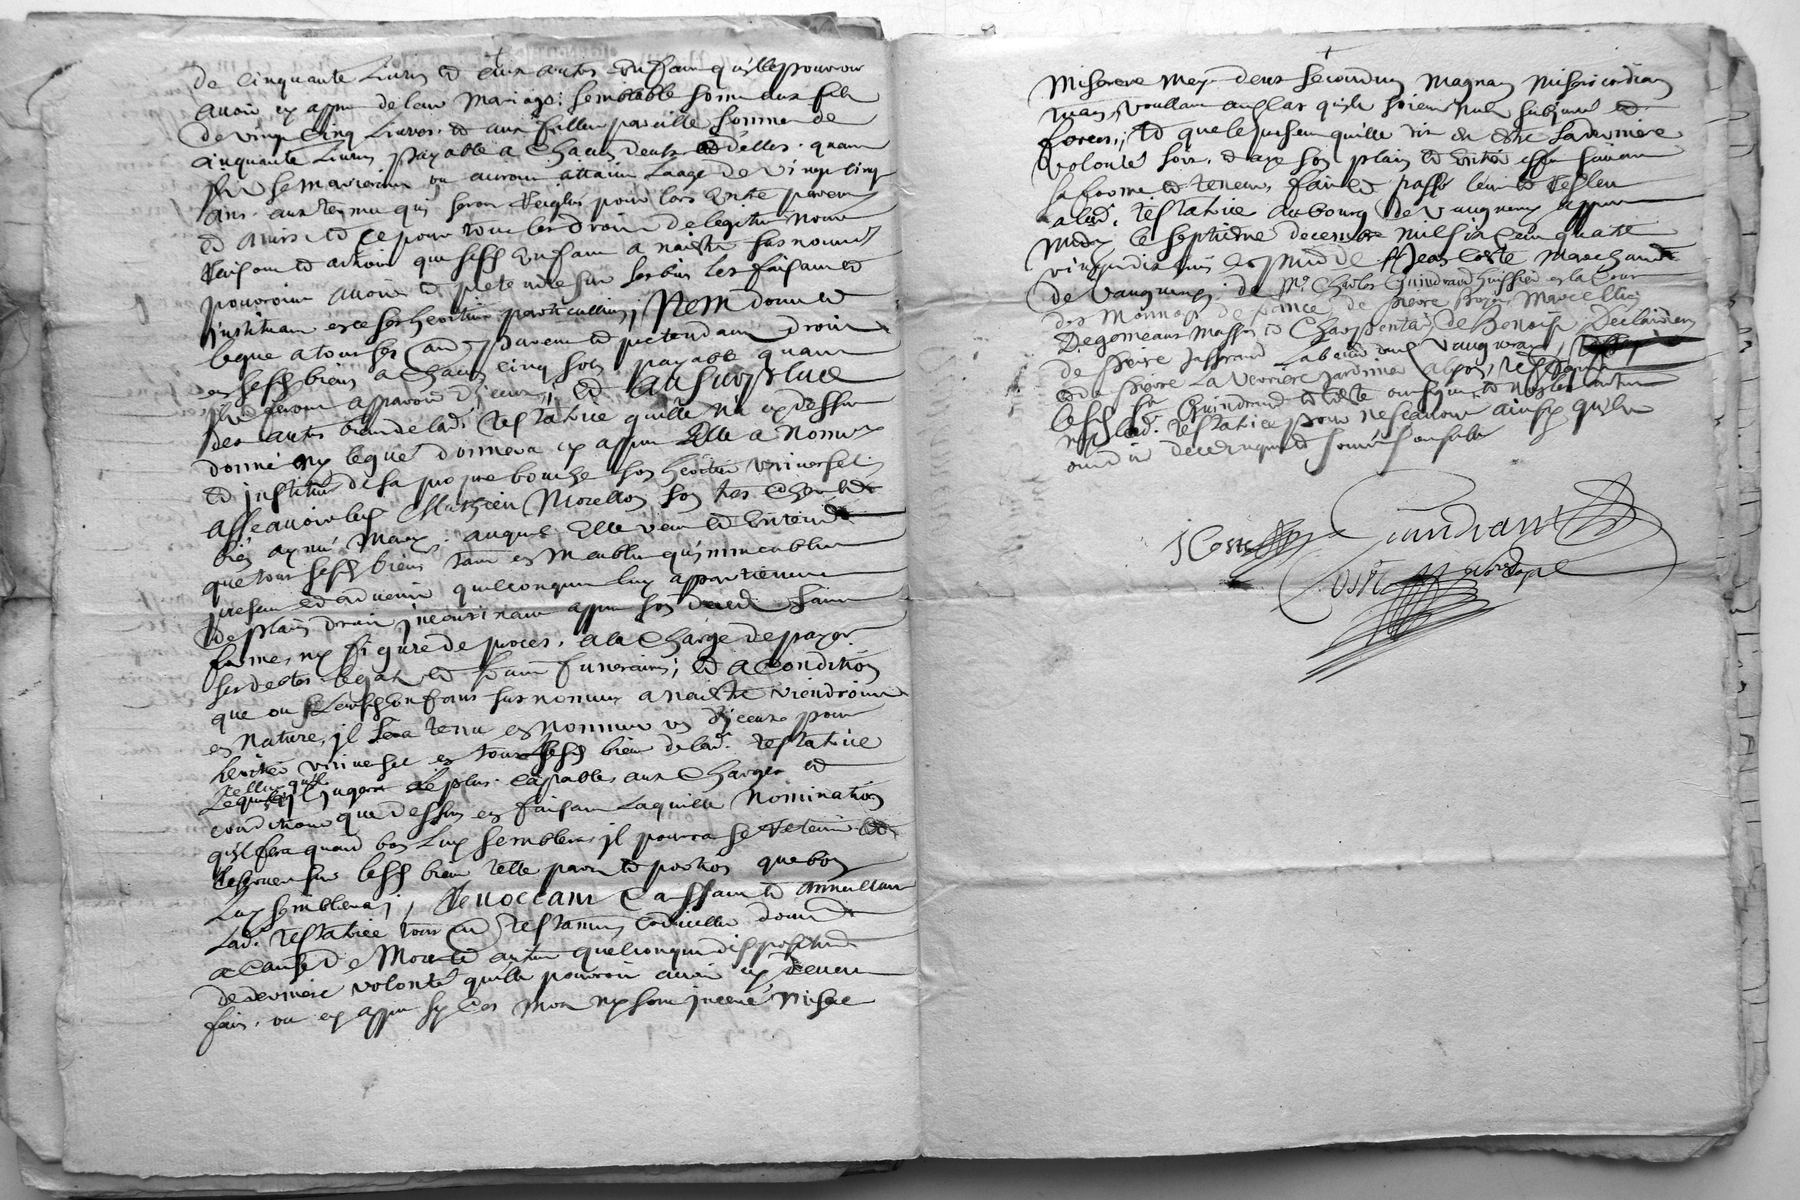 de cinquante livres et aux autres enfans qu'elle pourroit
avoir cy appres de leur mariage semblable somme aux filz
de vingt cinq livres et aux filles pareille somme de
cinquante livres payable a chacun d'eux et d'elles quant
ilz se marieront ou auront attaint l'aage de vingt cinq
ans aux termes qui seront reiglés pour lors entre parens
et amis et ce pour tous les droitz de legitime nom
raisons et actions que sesd enfans a naistre pourroient
pourroient avoir et pretendre sur ses biens les faisant et
instituant en ce ses heritiers particulliers ; Item donne et
legue a tous ses parens et pretendans droit
en sesd biens a chacun cinq solz payable quant
ilz feront apparoir d'iceux ; et au surplus
des autres biens de lad. testatrice qu'elle n'a cy dessus
donné ny legué donnera cy appres elle a nommé
et institué de sa propre bouche son heritier universel
assavoir led Mathieu Morellon son tres cher et
bien aymé mary auquel elle veut et entend
que tous sesd biens tant en meubles qu'immeubles
presens et advenir quelconques luy appartiennent
de plain droit incontinant appres son deces sans
forme ny figure de proces, a la charge de payer
ses debtes legatz et frais funeraires ; et a condition
que ou lesd enfans sus nommés a naistre viendroient
en nature, il sera tenu en nommer un d'iceux pour
heritier universel en tous sesd biens de lad. testatrice
tel qu'il
jugera le plus capable aux charges et
conditions que dessus en faisant laquelle nomination
qu'il fera quand bon luy semblera il pourra se retenir et
reserver sur lesd biens telle part et portion que bon
luy semblera ; revoccant cassant et annullant
lad. testatrice tous testamens codicilles donnation
a cause de mort et autres quelconques dispositions
de derniere volonté qu'elle pourroit avoir cy devant
fait, ou cy appres sy les motz ny sont inceré Misere
Miserere mey deus secundum magnam misericordiam
tuam, voullant qu'ils soient nulz
forces, et que le present qu'elle dit estre sa derniere
volonté sorte et aye son plain et entier effet suivant
sa forme et teneur, fait et passé leu et releu
a lad. testatrice au bourg de Vaugneray appres
midy le septiesme decembre mil six cent quatre
vingt dix huit es presence de Jean Coste marchand
de Vaugneray, de Mr Charles Guindrand huissier en la Cour
des Monnoys de France, de Pierre Marcellin
masson et charpentier, de Benoist
de Pierre Jasserand laboureur dud Vaugneray,
et de Pierre La Verriere jardinier a Lyon, tesmoins
lesd Sr Guindrand et Coste ont signé et non les autres
ny lad. testatrice pour ne scavoir ainsy qu'ilz
ont dit de ce enquis et sommés
J Coste Guindrand
Coste no.re royal